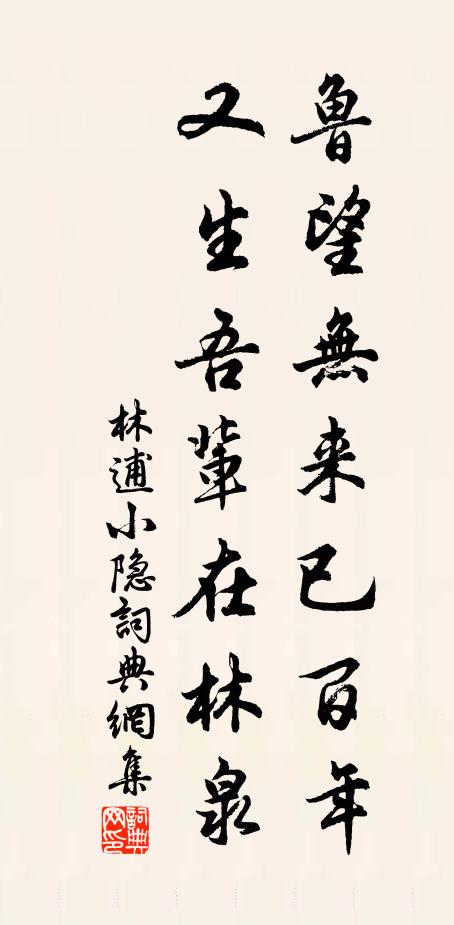 魯望無来已百年
又生吾輩在林泉
林逋小隐詞典網集
詞典網印